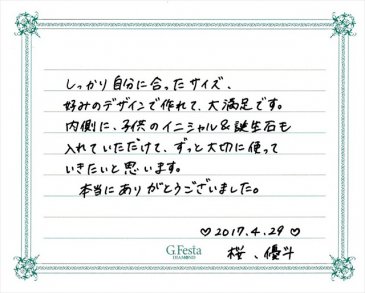 しっかり自分に合ったサイズ、
好みのデザインで作れて、大満足です。
内側に、子供のイニシャル&誕生石も
入れていただけて、ずっと大切に使って
いきたいと思います。
本当にありがとうございました。
♡2017.4.29♡
G.Festa
DIAMOND
桜、優斗